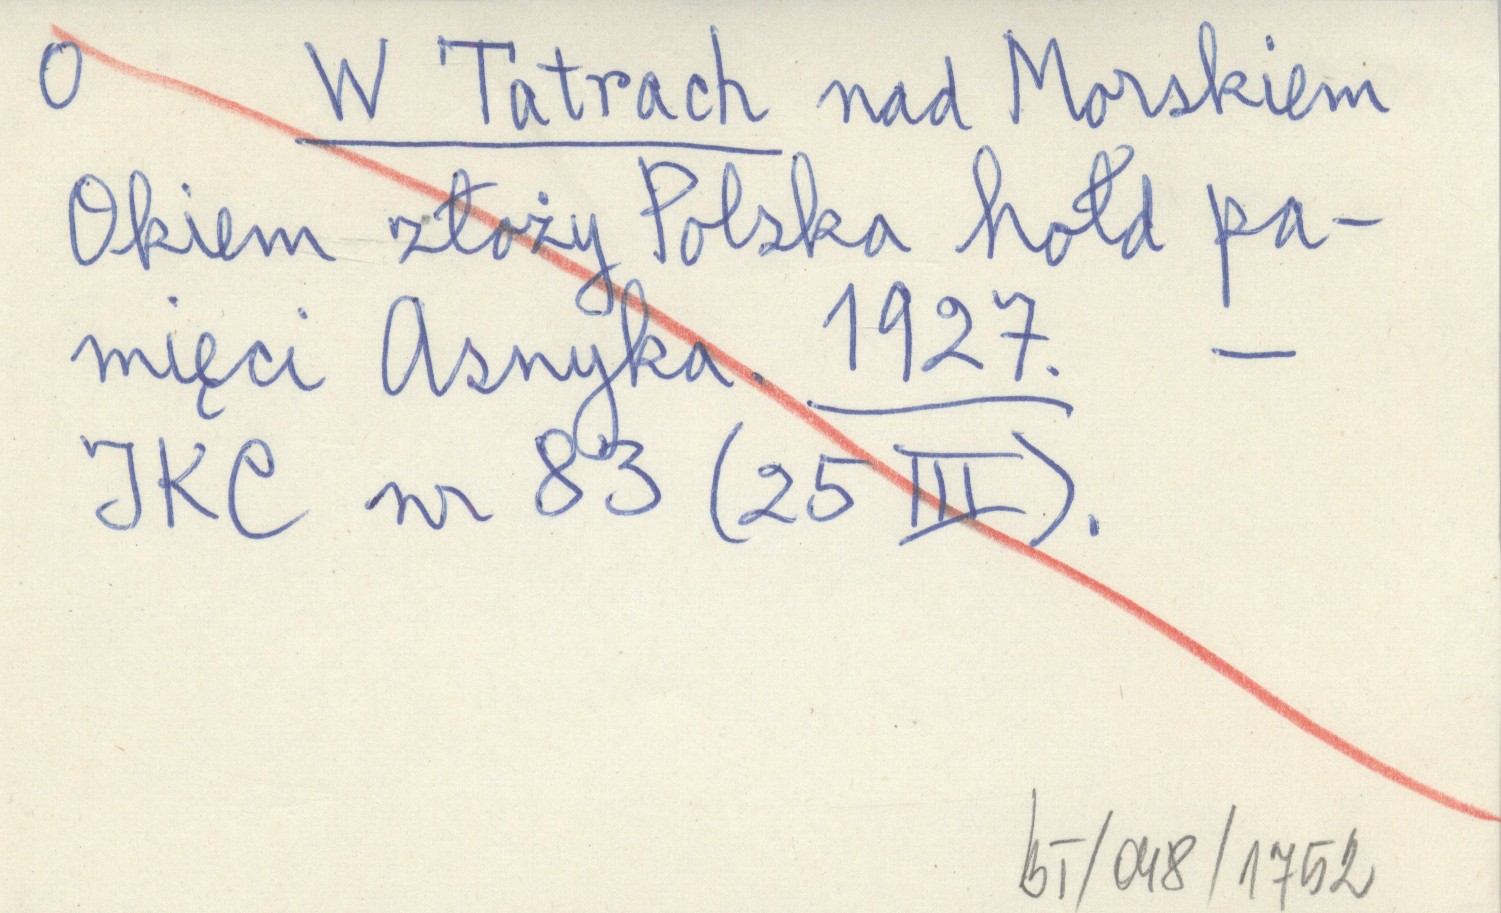 O W Tatrach nad Morskiem
Okiem złoży Polska hołd pa-
mięci Asnyka. 1927. —
IKC nr 83 (25 III).
bT/048/1752